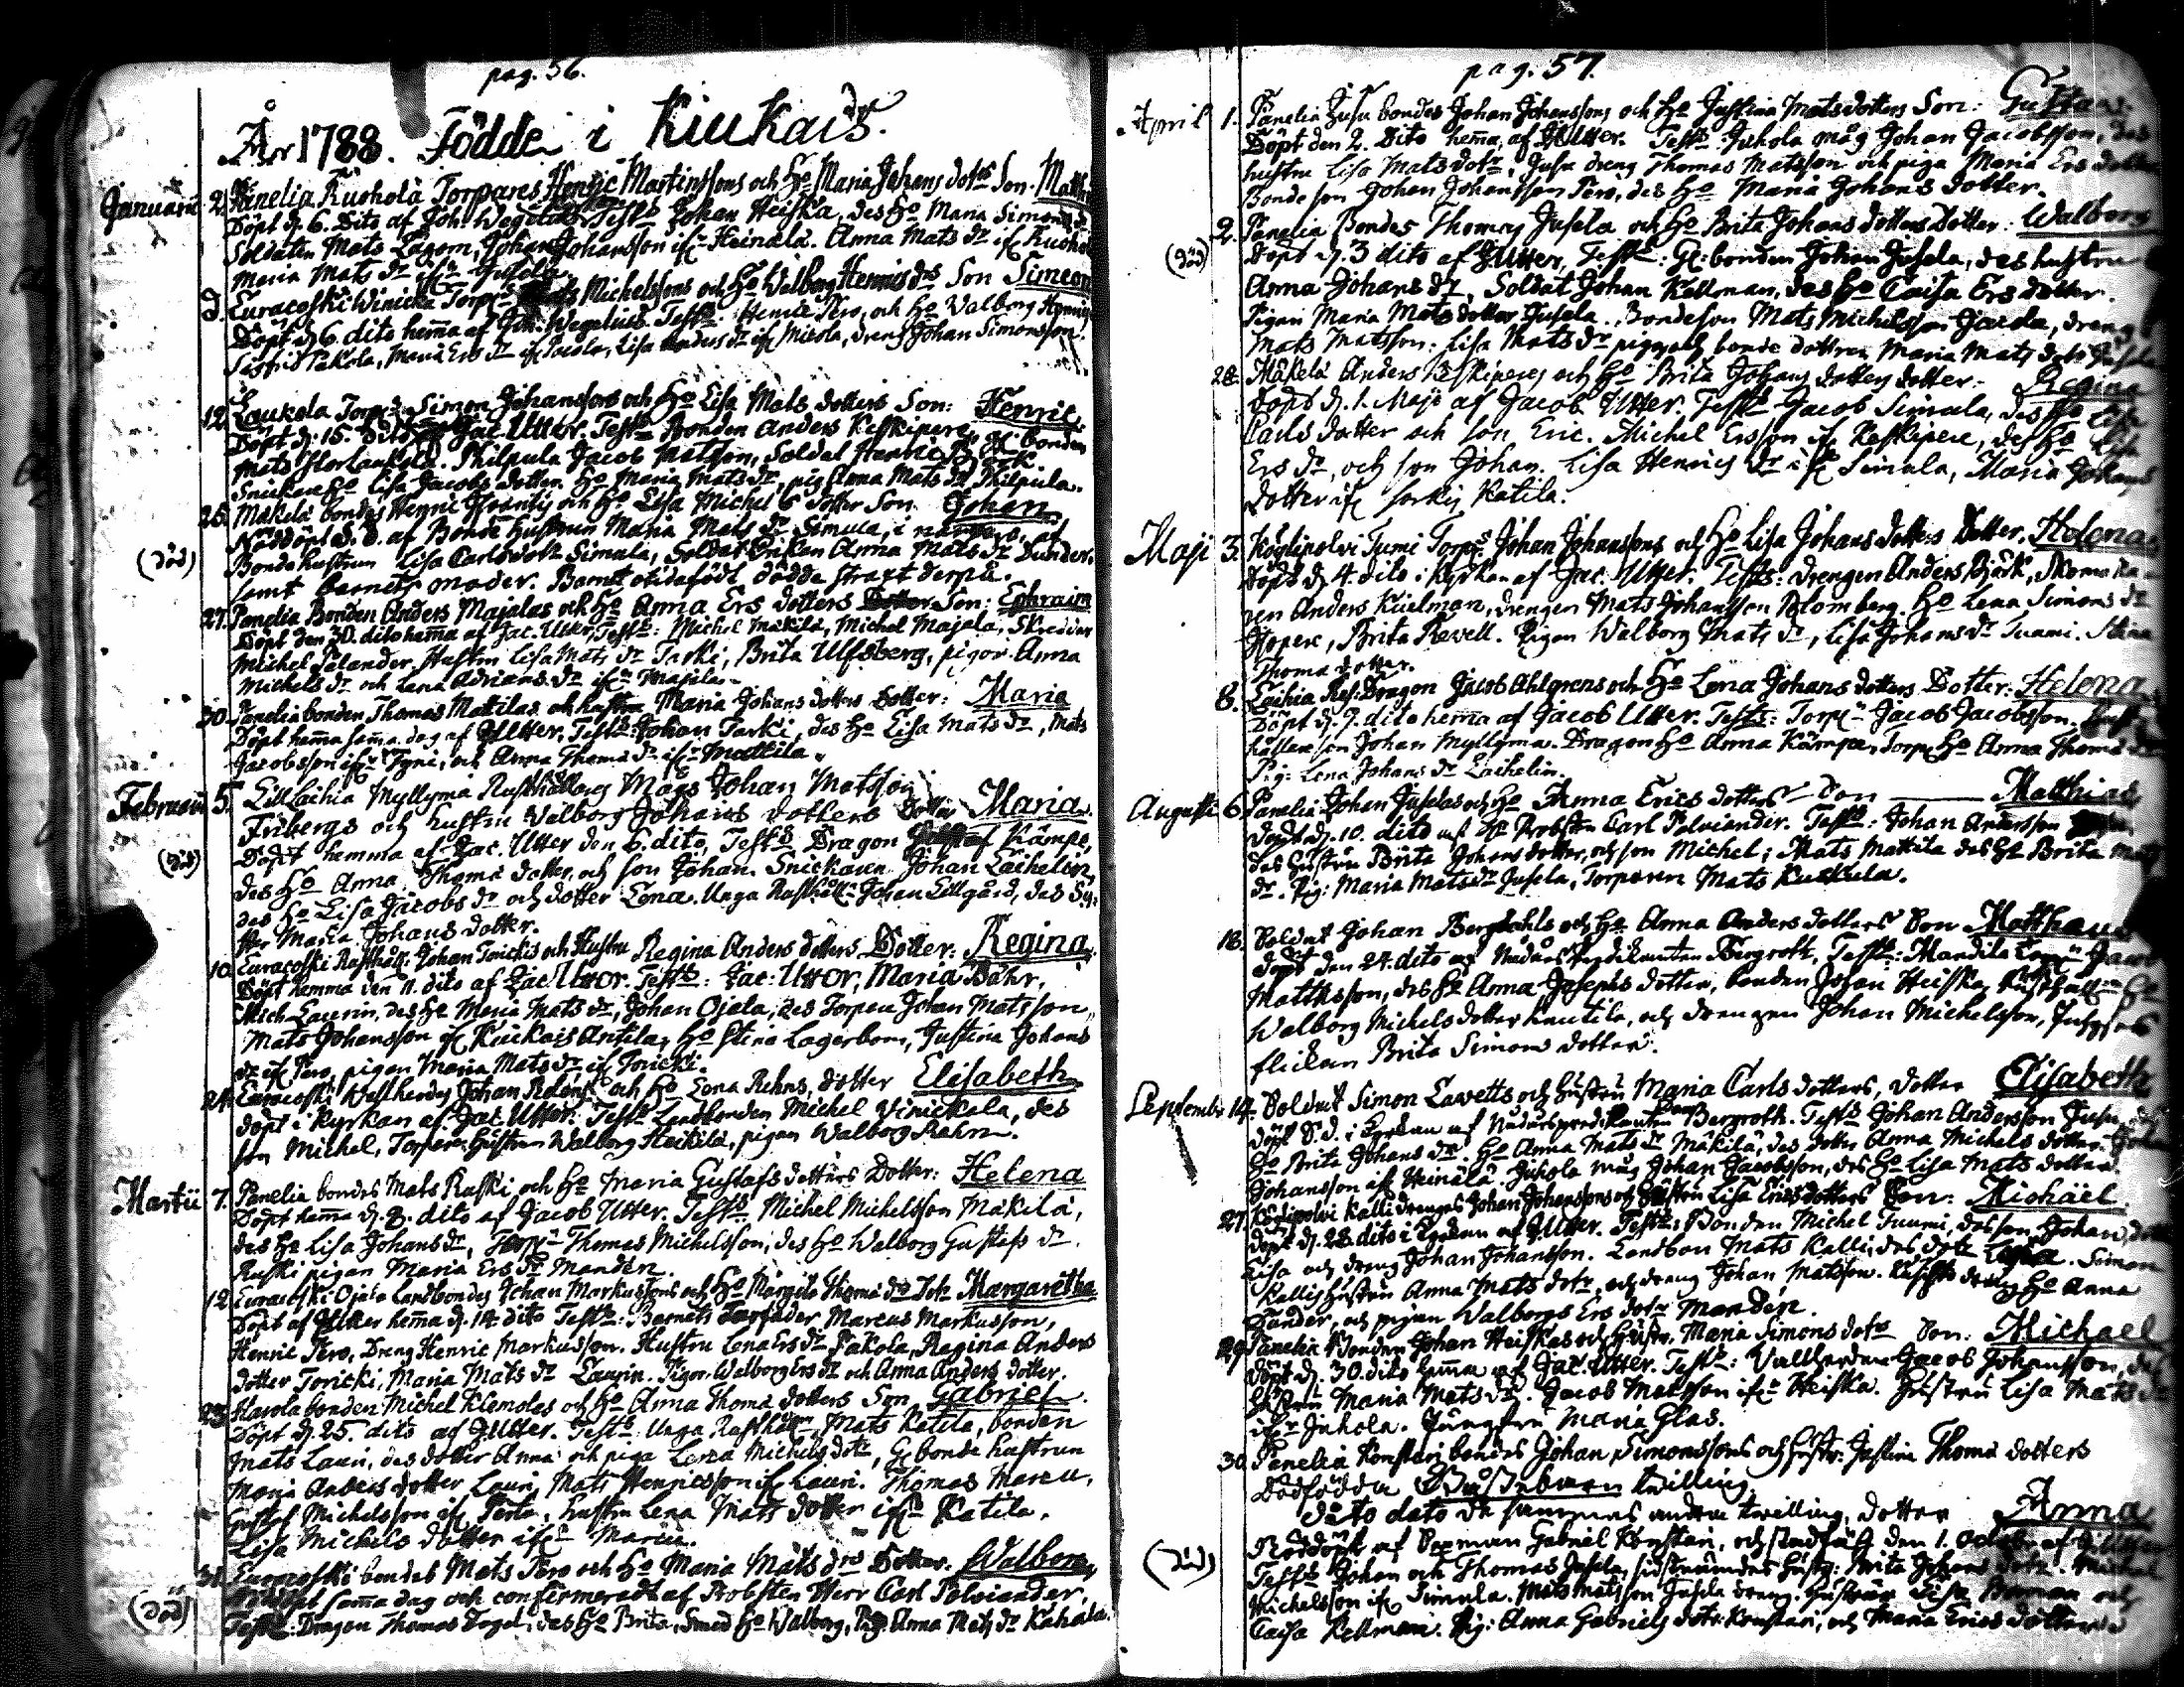 pag. 56.
År 1788. Födde i Kiukais.
Januarii 2. Panelia Kuohola Torpares Henric Martinssons och Ho Maria Johans dotrs Son. Matth
Döpt d. 6. Dito af Joh: Wegelius Tests Johan Heiska, des Ho Maria Simons
Soldaten Mats Lagom, Johan Johansson ifr Heinälä. Anna Mats dr ifr Kuoho
Maria Mats dr ifr Jusela
d. Euracoski Winicka Torprs Mats Michelssons och Ho Walborg Henrics drs Son Simeon
Döpt d. 6 dito hemma af Joh. Wegelius. Tests: Henric Pero, och Ho Walborg
Pakola, Maria Ers dr ifr Pacola, Lisa Anders dr ifr Micola, dräng Johan Simonsson
12. Laukola Torprs Simon Johanssons och Ho Lisa Mats dotters Son: Henric
Döpt d. 15. Dito af Jac. Utter. Tests Bonden Anders Keskipere, bonden
Mats StorLaukola. Philpula Jacob Matsson, Soldat Henric
Snickare Ho Lisa Jacobs dotter Ho Maria Mats dr, pig. Anna Mats dr Philpula.
25. Mäkelä bondes Henric och Ho Lisa Michels dotter Son Johan
Nöddöpt S. d. af Bonde hustrun Maria Mats dr Simula, i närvaro af
(död) Bondehustrun Lisa Carls dotr Simala, Soldat Enkan Anna Mats dr Sunder,
samt barnets moder. Barnet otidafödt dödde straxt derpå.
27. Panelia Bonden Anders Majalas och Ho Anna Ers dotters Dotter Son: Ephraim
Döpt den 30. dito hemma af Jac. Utter, Tests: Michel Mäkilä, Michel Majala, Skreddar
Michel Palander. Hustru Lisa Mats dr Tarki, Brita Ulfsberg, pigor Anna
Michels dr och Lena Adrians dr ifr Majala.
30. Panelia bonden Thomas Mattilas och hustru Maria Johans dotters Dotter: Maria
Döpt hemma samma dag af J Utter, Tests: Johan Tarki, des Ho Lisa Mats dr, Mats
Jacobsson ifr Tyni, och Anna Thoma dr ifr Mattila.
Februarii 5. LillLaihia Myllymä Rusthållares Mågs Johan Matsson
Fribergs och hustru Walborg Johans dotters Dotter Maria
Döpt hemma af Jac. Utter den 6. dito, Tests Dragon Kämpe,
(död) des Ho Anna Thoma dotter, och son Johan. Snickaren Johan Laihelin,
des Ho Lisa Jacobs dr och dotter Lena. Unga Rusthåll: Johan Lillgård, des Sy-
ster Maria Johans dotter.
10. Euracoski Rusthåll: Johan Torickis och Hustru Regina Anders dotters Dotter: Regina
Döpt hemma den 11. dito af Jac Utter. Tests: Jac: Utter, Maria Bähr,
Mich Laurin, des Ho Maria Mats dr, Johan Ojala, des Torpare Johan Matsson,
Mats Johansson ifr Kiukais Antila, Ho Stina Lagerbom, Justina Johans
dr ifr Pero, pigan Maria Mats dr ifr Toricki.
24. Euracoski Wallherdes Johan och Ho Lena Rehns, dotter Elisabeth
döpt i Kyrkan af Jac Utter. Tests Landbonden Michel Winickala, des
son Michel, Torpare hustrun Walborg Heikilä, pigan Walborg Rahn.
Martii 7. Panelia bondes Mats Raski och Ho Maria Gustafs dotters Dotter: Helena
Döpt hemma d. 8. dito af Jacob Utter. Tests Michel Michelsson Mäkilä,
des Ho Lisa Johans dr, Torpr Thomas Michelsson, des Ho Walborg Gustafs dr.
Raski pigan Maria Ers dr Mandén.
12. Euracoski Ojala Landbondes Johan Markussons och Ho Margita Thoma drs Dotr Margaretha
Döpt af J Utter hemma d. 14. dito Tests: Barnets Farfader Marcus Markusson,
Henric Pero, Dräng Henric Markusson. Hustru Lena Ers dr Pakola, Regina Anders
dotter Toricki, Maria Mats dr Laurin. Pigor Walborg Ers dr och Anna Anders dotter.
23. Harola bonden Michel Klemolas och Ho Anna Thoma dotters Son Gabriel
Döpt d. 25. dito af J Utter. Tests Unga Rusthålln Mats Katila, bonden
Mats Lauri, des dotter Anna och piga Lena Michels dotr, Gl bonde hustrun
Maria Anders dotter Lauri, Mats Henricsson ifr Lauri. Thomas Marcu,
Gustaf Michelsson ifr Perta, hustru Lena Mats dotter ifr Katila,
Lisa Michels dotter ifr Marcu.
31. Euracoski bondes Mats Pero och Ho Maria Mats drs Dotter. Walborg
Nöddöpt samma dag och confirmeradt af Probsten Herr Carl Polviander,
(död) Tests: Dragon Thomas Dogel, des Ho Brita, Smed Ho Walborg, Pig. Anna Mats dr Kahala.
pag. 57.
April 1. Panelia Jusu bondes Johan Johanssons och Ho Justina Mats dotters Son: Gustaav
Döpt den 2. Dito hemma af J Utter. Tests: Juhola måg Johan Jacobsson, des
hustru Lisa Mats dotr, Jusu dreng Thomas Matsson och piga Maria Ers dotter
Bonde son Johan Johansson Pero, des Ho Maria Johans dotter.
2. Panelia Bondes Thomas Jusela och Ho Brita Johans dotters Dotter: Walborg
(död) Döpt d. 3 dito af J Utter, Tests: Gl: bonden Johan Jusela, des hustru
Anna Johans dr, Soldat Johan Kellman, des Ho Caisa Ers dotter.
Pigan Maria Mats dotter Jusela. Bondeson Mats Michelsson Jacola, dreng
Mats Matsson. Lisa Mats dr piga och bonde dottren Maria Mats dotr Jusela
28. Mäkelä Anders Keskiperes och Ho Brita Johans dotters dotter. Regina
Döpt d. 1. Maji af Jacob Utter. Tests Jacob Simula, des Ho Lisa
Carls dotter och son Eric. Michel Ersson ifr Keskipere, des Ho Lisa
Ers dr, och son Johan. Lisa Henrics dr ifr Simula, Maria Johans
dotter ifr Katila.
Maji 3. Köylipolvi Tumi Torprs Johan Johanssons och Ho Lisa Johans dotters Dotter. Helena
Döpt d. 4. dito i Kyrkan af Jac. Utter. Tests: drengen Anders Björk, Skomaka-
ren Anders Kuelman, drengen Mats Johansson Blomberg. Ho Lena Simons dr
Brita Revell. Pigan Walborg Mats dr, Lisa Johans dr Tuami. Stina
Thoma dotter.
8. Laihia Res: Dragon Jacob Ahlgrens och Ho Lena Johans dotters Dotter: Helena
Döpt d. 9. dito hemma af Jacob Utter. Tests: Torprn Jacob Jacobsson.
son Johan Myllymä. Dragon Ho Anna Kämpe, Torpr Ho Anna Thoma
Pig: Lena Johans dr Laihelin.
Augusti 6. Panelia Johan Juselas och Ho Anna Erics dotters Son Matthias
Döpt d. 10. dito af Hr Probsten Carl Polviander. Tests: Johan Andersson
des hustru Brita Johans dotter, och son Michel; Mats Mattila des Ho Brita Mats
dr. Pig: Maria Mats dr Jusela, Torparen Mats Kuckula.
18. Soldat Johan Bergdahls och Ho Anna Anders dotters Son Matthaus
döpt den 24. dito af Nådårs Predikanten Bergroth, Tests: Mandila Jacob
Mattsson, des Ho Anna Josephs dotter, bonden Johan Heiska, Rusthålln Ho
Walborg Michels dotter Knutila, och drengen Johan Michelsson,
flickan Brita Simons dotter.
Septembr 14. Soldat Simon Lawetts och hustru Maria Carls dotters, dotter Elisabeth
döpt S. d. i Kyrkan af Nådårspredikanten Bergroth. Tests Johan Andersson
Ho Brita Johans dr. Ho Anna Mats dr Mäkilä, des dotter Anna Michels dotter. Johan
Johansson ifr Heinälä. Juhola måg Johan Jacobsson, des Ho Lisa Mats dotter.
27. Köylipolvi Kalli drenges Johan Johanssons och Hustru Lisa Ers dotters Son: Michäel
Döpt d. 28 dito i Kyrkan af J Utter. Tests: Bonden Michel Tuumi, des son Johan, dotter
Lisa och dreng Johan Johansson. Landbon Mats Kalli, des dotr Lisa. Simon
Kallis hustru Anna Mats dotr, och dreng Johan Matsson. Ho Anna
Sänder, och pigan Walborg Ers dotr Mandén.
29. Panelia Bonden Johan Heiskas och Hustru Maria Simons dotrs Son: Michael
döpt d. 30. dito hemma af Jac. Utter. Tests: Vallherden Jacob Johansson, des
hustru Maria Mats dr. Jacob Matsson ifr Heiska. Hustru Lisa Mats dr
ifr Juhola. Jungfru Maria Glas.
30. Panelia Konstari bondes Johan Simonssons och hustr: Justina Thoma dotters
Dödfödda Gåssebarn twilling.
dito dato de sammas andra twilling, dotter Anna
Nöddöpt af Gabriel Konstari, och stadfäst den 1. October af J Utter
(död) Tests Johan och Thomas Jusela, sistnämndes hustr: Brita Johans dotr. Michel
Michelsson ifr Simula. Mats Matsson Jusela dreng. Hustrun Lisa Borman och
Caisa Kellman. Pig: Anna Gabriels dotr Konstari, och Maria Erics dotter